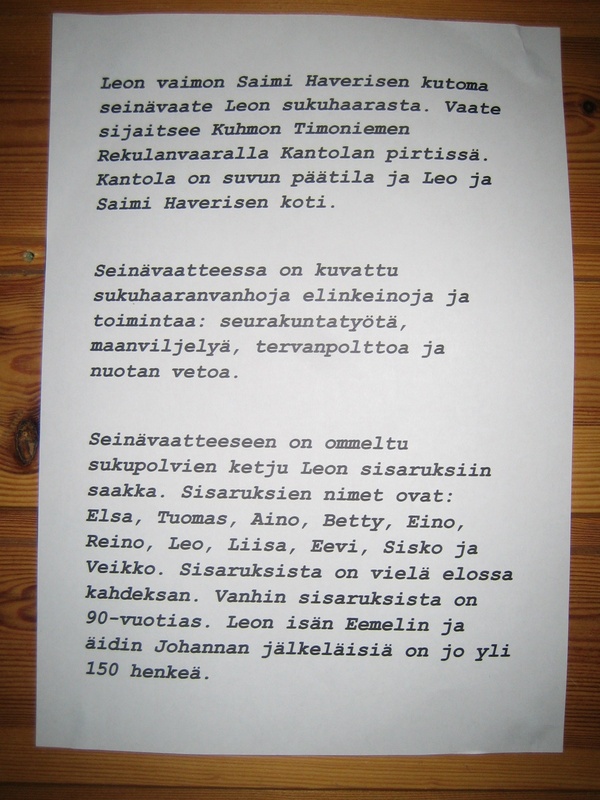 Leon vaimon Saimi Haverisen kutoma
seinävaate Leon sukuhaarasta. Vaate
sijaitsee Kuhmon Timoniemen
Rekulanvaaralla Kantolan pirtissä.
Kantola on suvun päätila ja Leo ja
Saimi Haverisen koti.
Seinävaatteessa on kuvattu
sukuhaaranvanhoja elinkeinoja ja
toimintaa: seurakuntatyötä,
maanviljelyä, tervanpolttoa ja
nuotan vetoa.
Seinävaatteeseen on ommeltu
sukupolvien ketju Leon sisaruksiin
saakka. Sisaruksien nimet ovat:
Elsa, Tuomas, Aino, Betty, Eino,
Reino, Leo, Liisa, Eevi, Sisko ja
Veikko. Sisaruksista on vielä elossa
kahdeksan. Vanhin sisaruksista on
90-vuotias. Leon isän Eemelin ja
äidin Johannan jälkeläisiä on jo yli
150 henkeä.